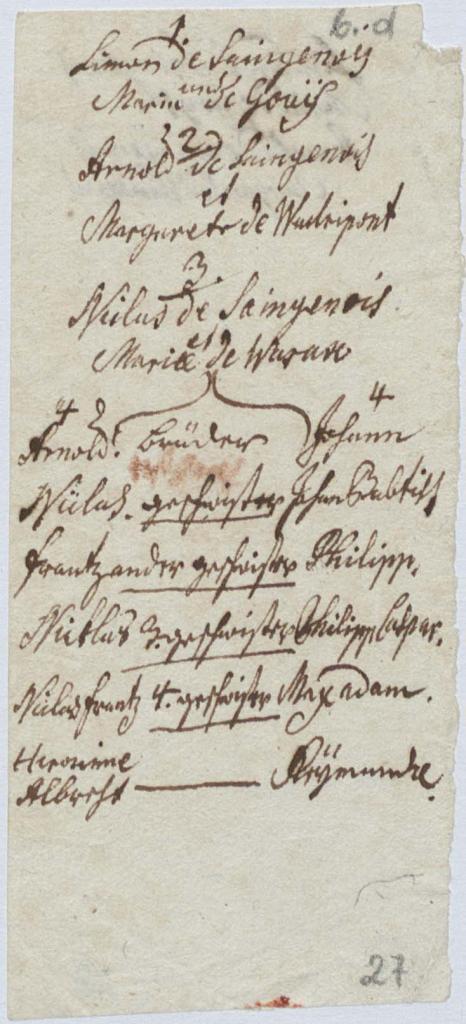 6. d
1
Simon de Saingenois
Maria und de Goüÿ
2
Arnold de Saingenois
et
Margarete de Wadripont
3.
Niclas de Saingenois
et
Maria de Warax
4 4
Arnold. brüder Johann
Niclas. geschwister Johan Babtist
frantz ander geschwister Philipp.
Nicklas 3. geschwister Philipp Caspar.
Niclas frantz 4. geschwister Max adam.
Hieronime
Albrecht — Reÿmundre.
27